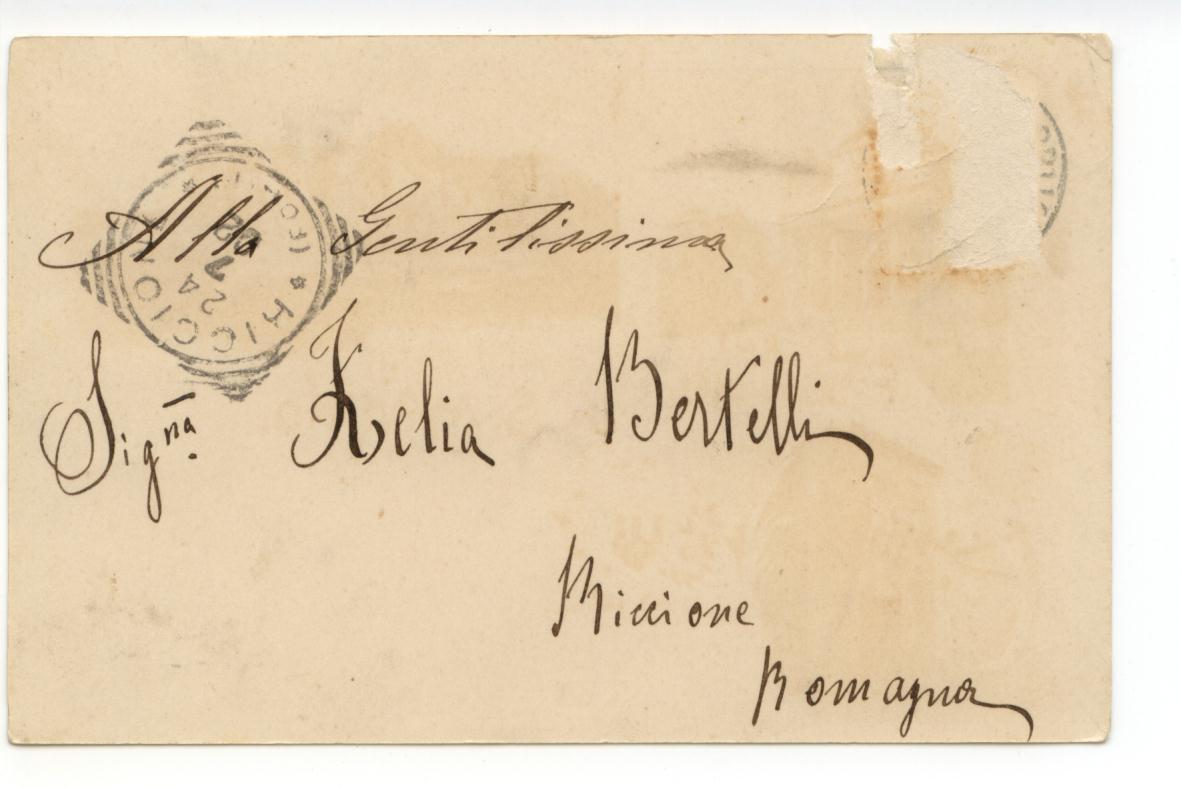 Alla Gentilissima
Sig.na Bertelli
Riccione
Romagna
RICCIONE
(FORLI)
24
7